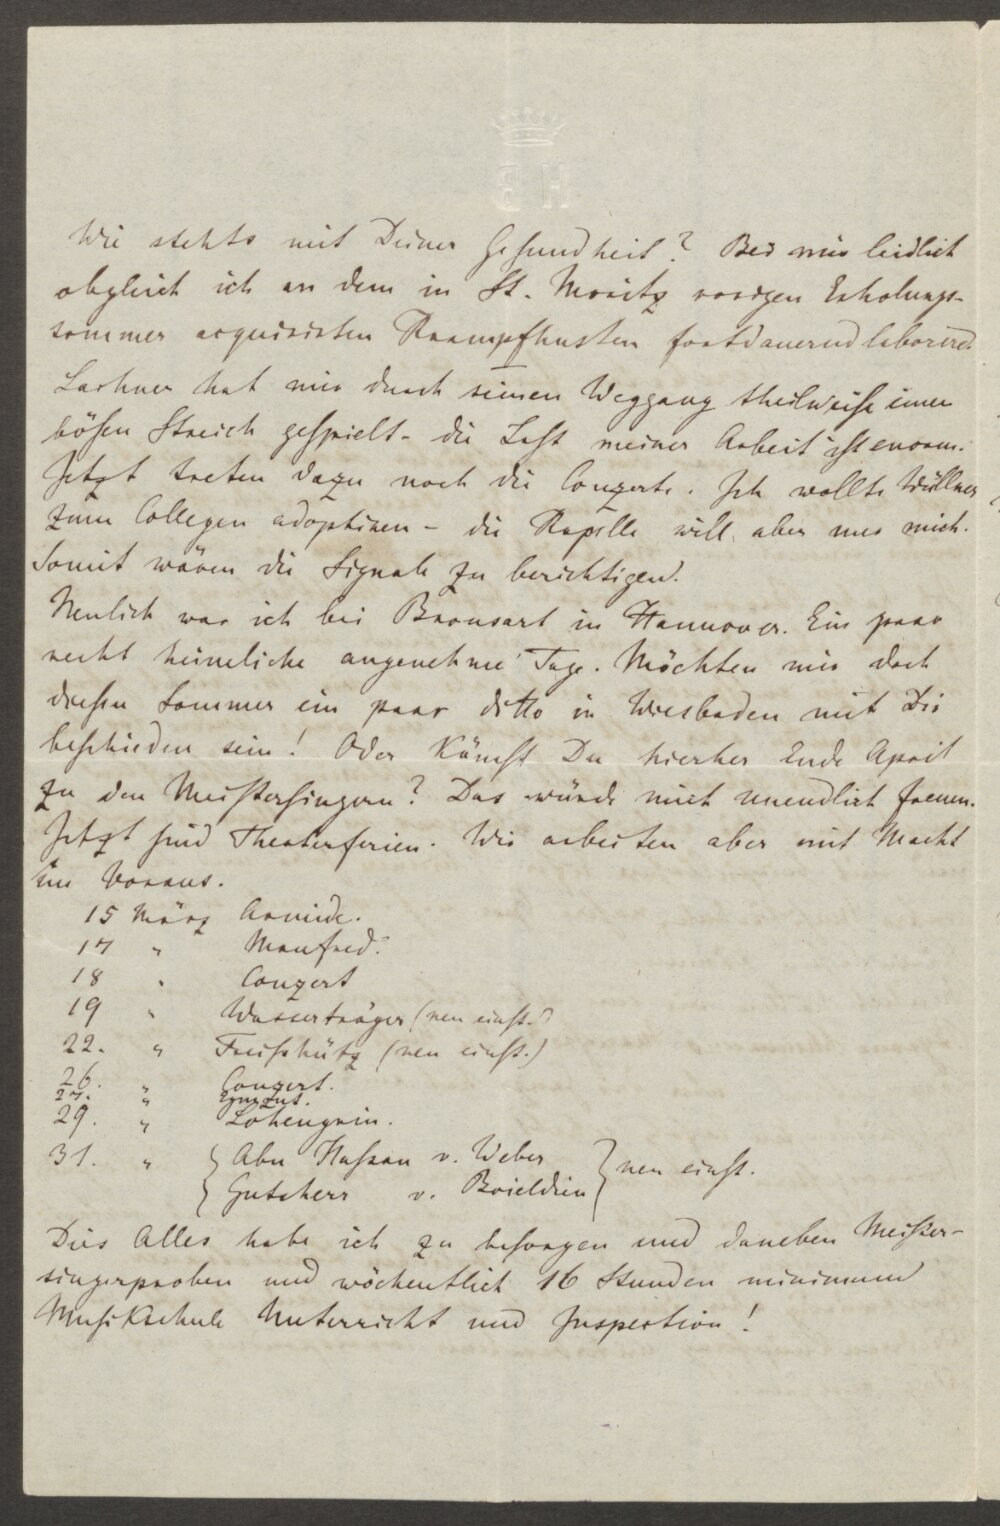 Wie stehts mit Deiner Gesundheit? Bei mir leidlich
obgleich ich an dem in St. Moritz vorigen Erholungs-
sommer acquirirten Krampfhusten fortdauernd laborire.
Lachner hat mir durch seinen Weggang theilweise einen
bösen Streich gespielt - die Last meiner Arbeit ist enorm.
Jetzt treten dazu noch die Conzerte. Ich wollte Wüllner
zum Collegen adoptiren - die Kapelle will aber nur mich.
Somit wären die Signale zu berichtigen.
Neulich war ich bei Bronsart in Hannover. Ein paar
recht heimeliche angenehme Tage. Möchten mir doch
diesen Sommer ein paar ditto in Wiesbaden mit Dir
beschieden sein! Oder kämst Du hierher Ende April
zu den Meistersingern? Das würde mich unendlich freuen.
Jetzt sind Theaterferien. Wir arbeiten aber mit Macht
im Voraus.
15 März Armide.
17 " Manfred.
18 " Conzert
19 " Wasserträger (neu einst.)
22. " Freischütz (neu einst.)
26. " Conzert.
27. "
29. " Lohengrin.
31. " { Abu Hassan v. Weber } neu einst.
{ Gutsherr v. Boieldieu }
Dies Alles habe ich zu besorgen und daneben Meister-
singerproben und wöchentlich 16 Stunden minimum
Musikschule Unterricht und Inspection!